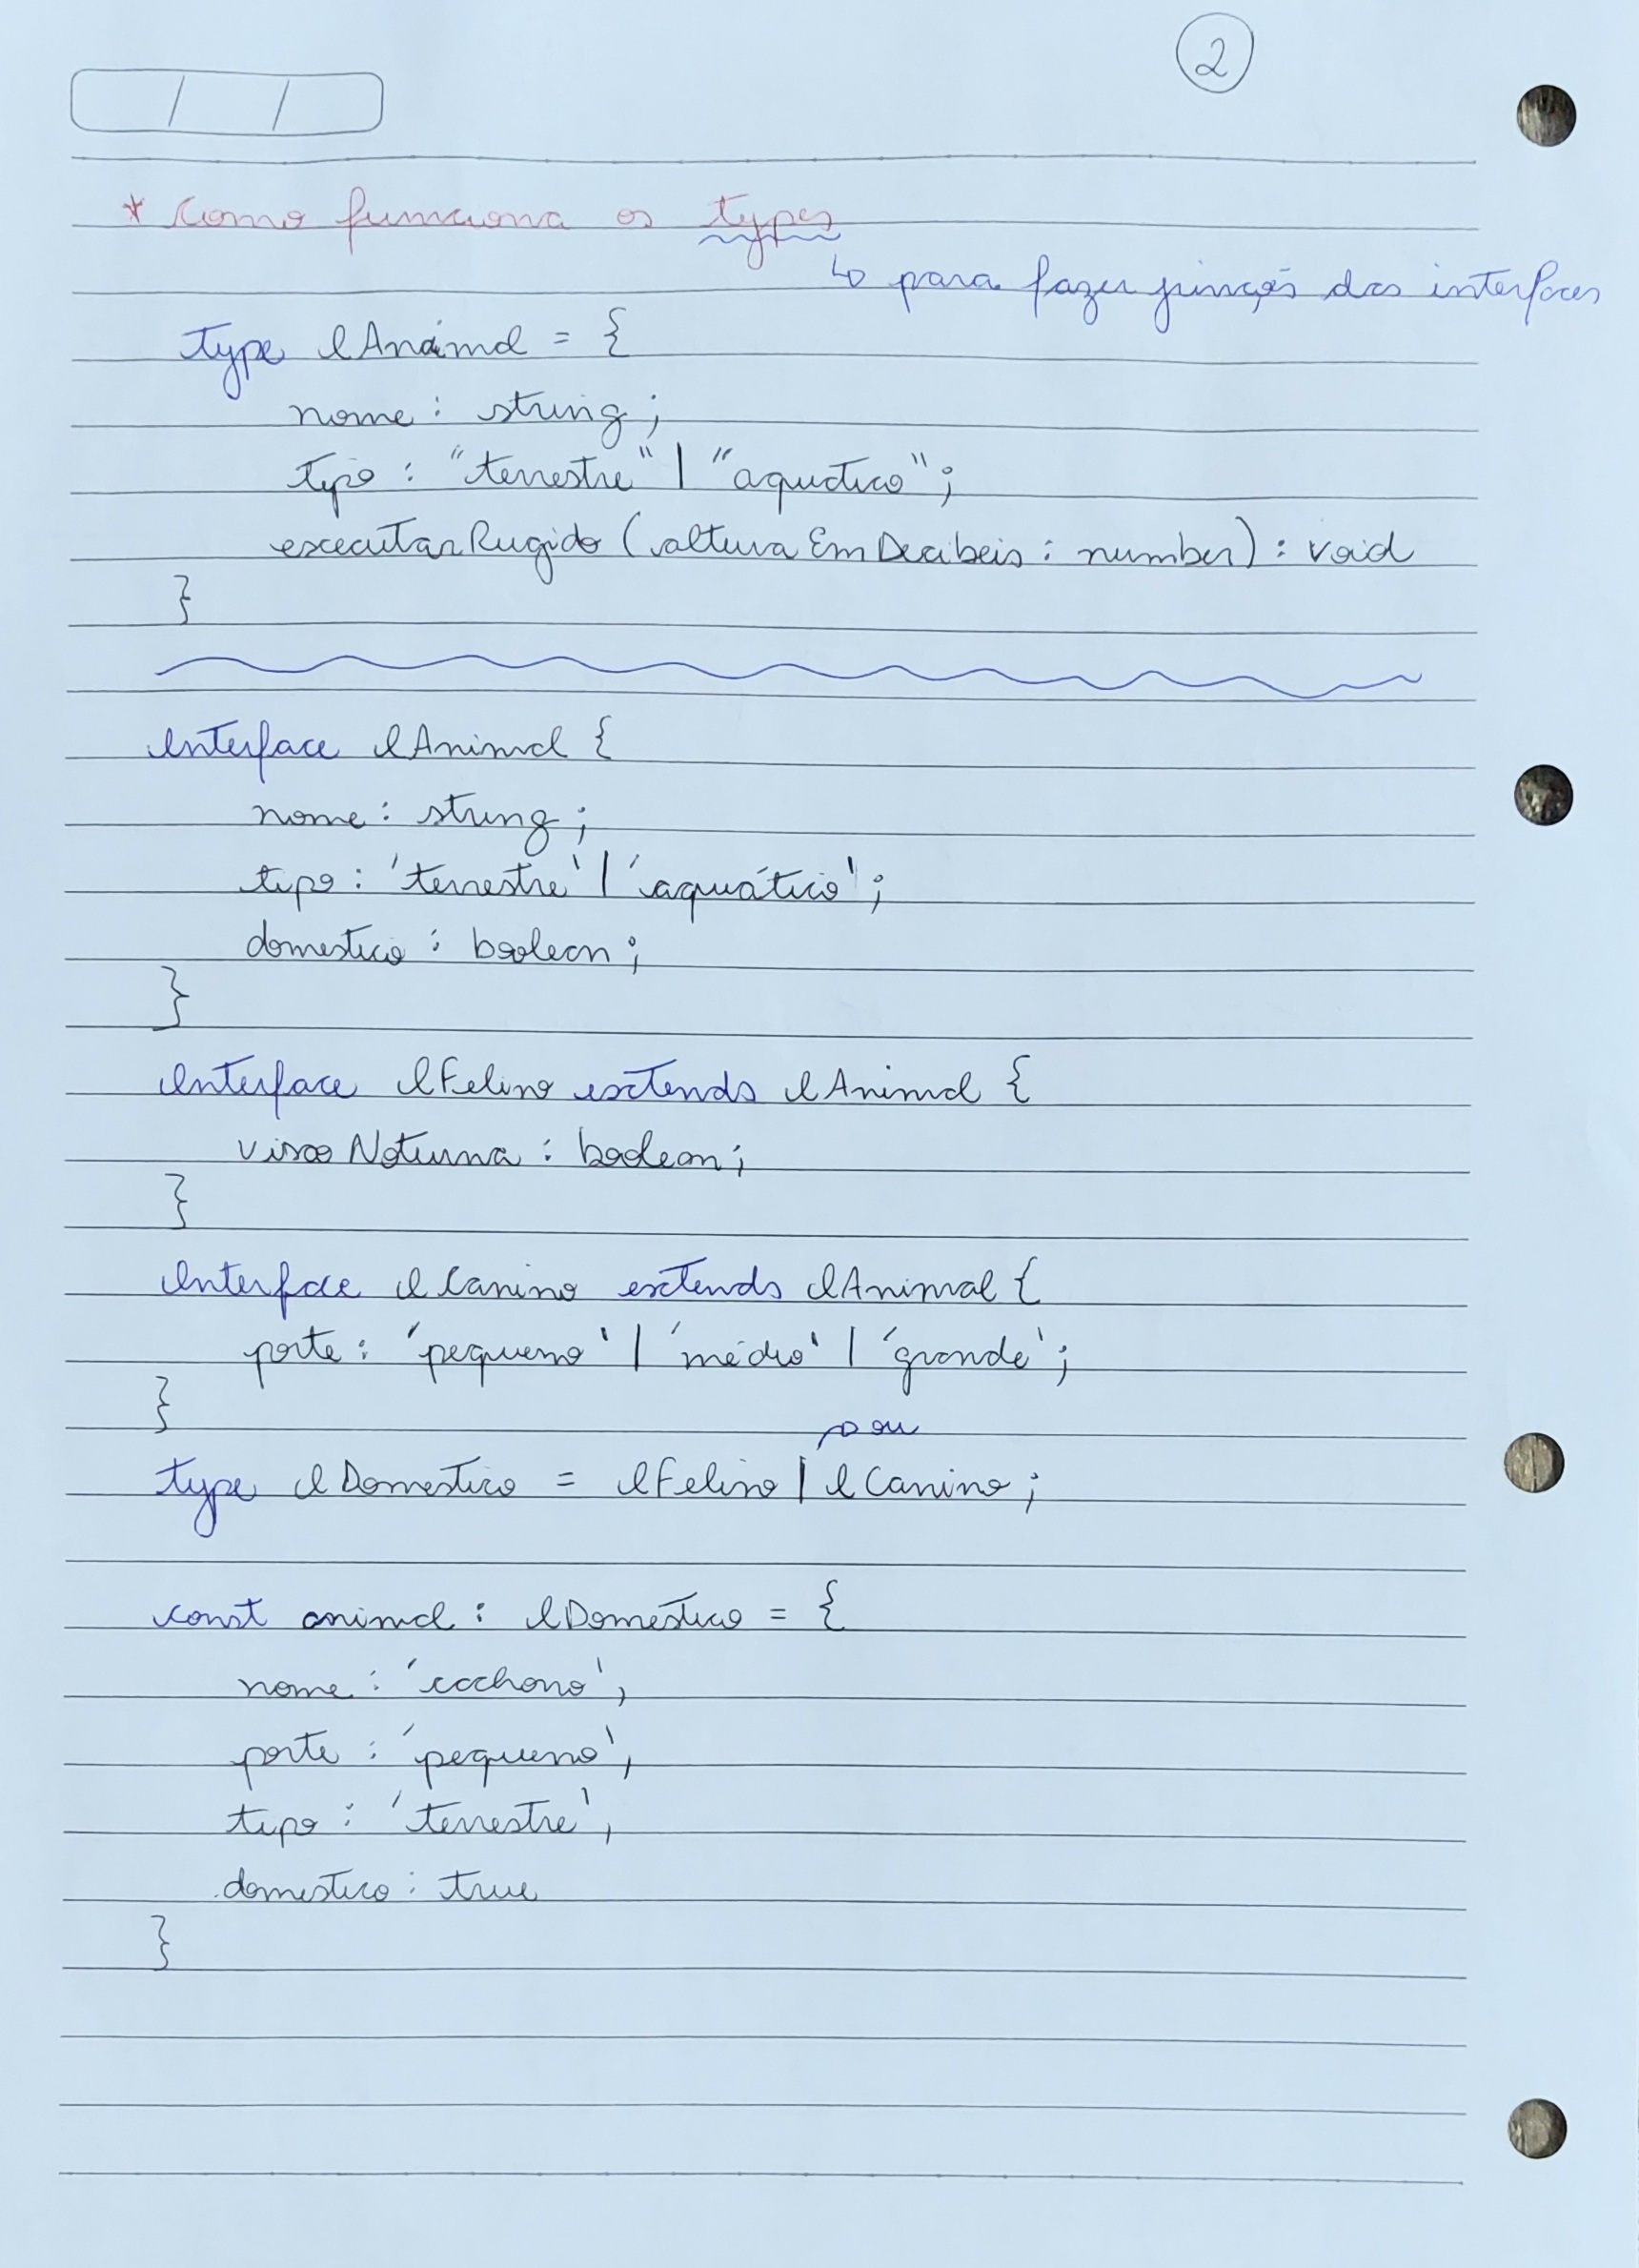 2
/ /
* Como funciona os types
↳ para fazer junção das interfaces
type IAnimal = {
nome: string;
tipo: "terrestre" | "aquatico";
executarRugido (alturaEmDecibeis: number): void
}
Interface IAnimal {
nome: string;
tipo: 'terrestre' | 'aquático';
domestico: boolean;
}
Interface IFelino extends IAnimal {
visaoNoturna: boolean;
}
Interface ICanino extends IAnimal {
porte: 'pequeno' | 'médio' | 'grande';
}
ou
type IDomestico = IFelino | ICanino;
const animal: IDomestico = {
nome: 'cachorro',
porte: 'pequeno',
tipo: 'terrestre',
domestico: true
}